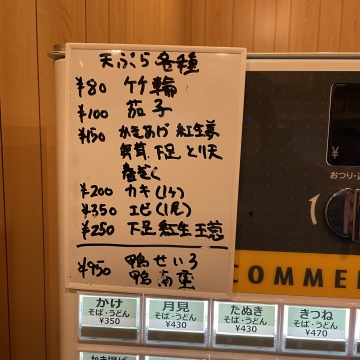 天ぷら各種
¥80 竹輪
¥100 茄子
¥150 かきあげ 紅生姜
舞茸 下足 とり天
春菊
¥200 カキ(1ケ)
¥350 エビ(1尾)
¥250 下足紅生玉葱
¥950 鴨せいろ
鴨南蛮
¥
おつり・
COMME
かけ
そば・うどん
¥350
月見
そば・うどん
¥430
たぬき
そば・うどん
¥430
きつね
そば・うどん
¥470
かき揚げ